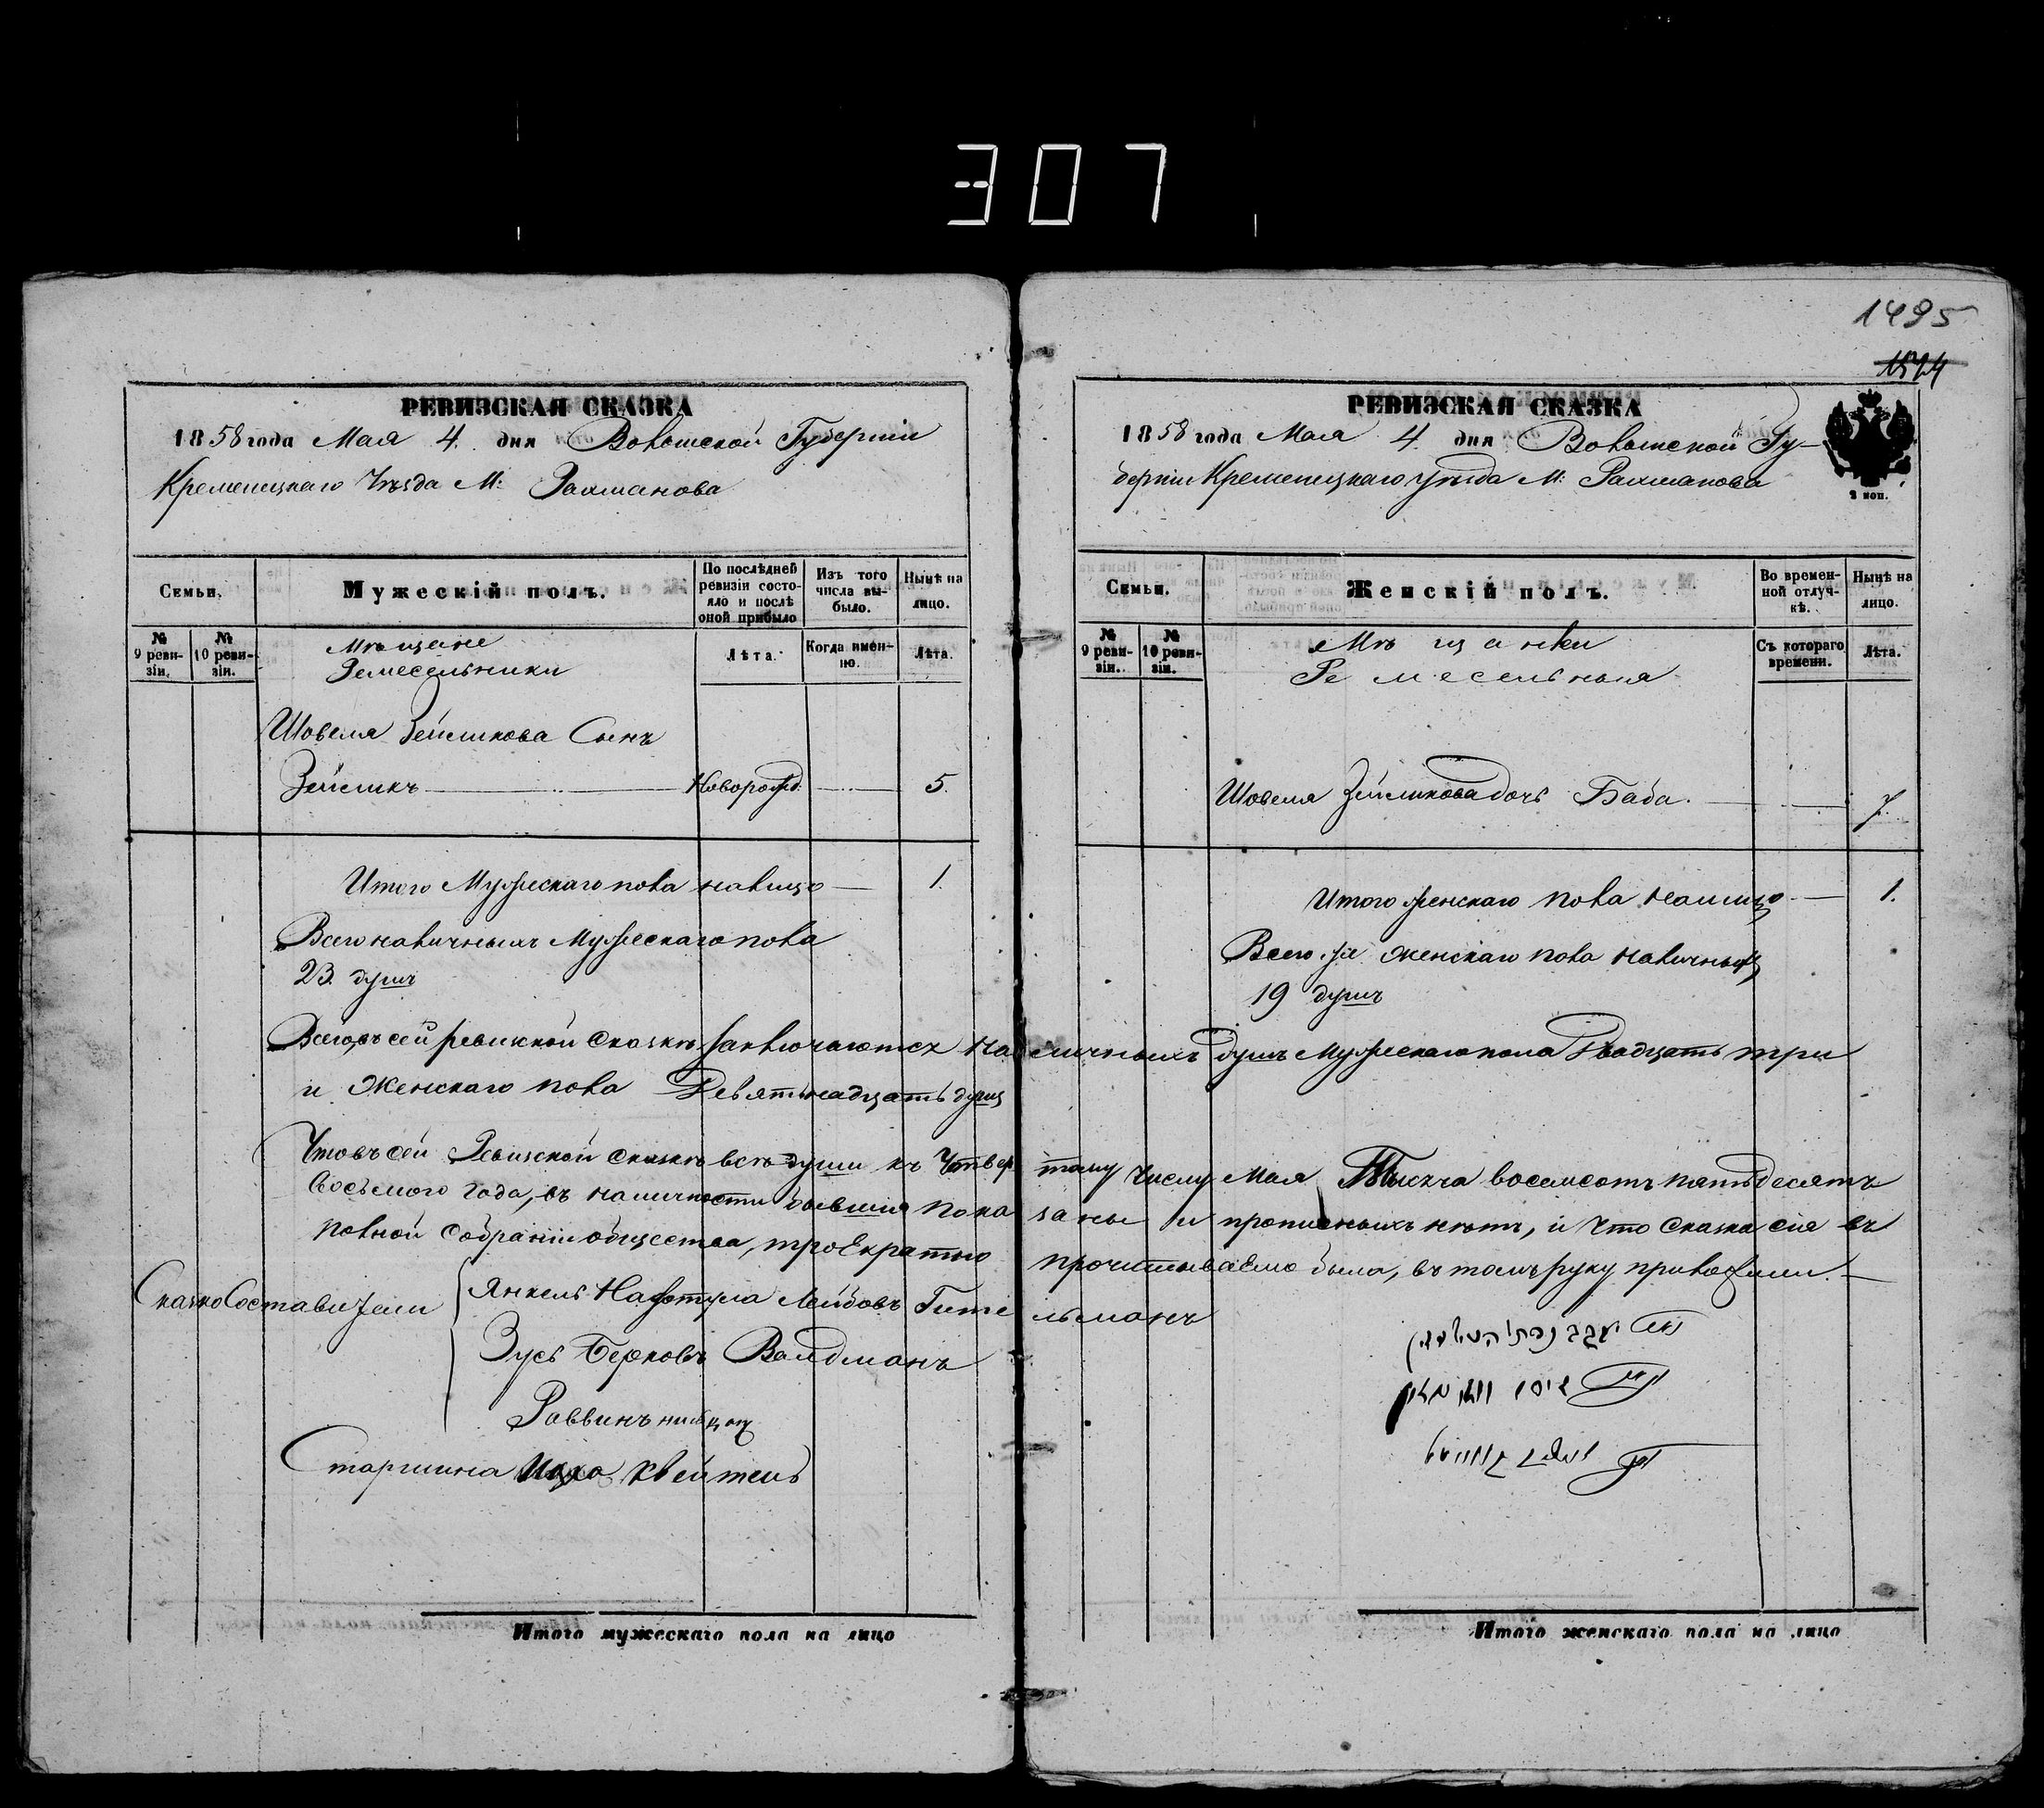 307
РЕВИЗСКАЯ СКАЗКА
1858 года Мая 4. дня Волынской Губерніи
Кременецкаго Уѣзда М: Рахманова
Семьи,
Мужескій полъ.
По послѣдней ревизіи состояло и послѣ оной прибыло
Изъ того числа выбыло.
Нынѣ на лицо.
№ 9 ревизіи.
№ 10 ревизіи.
Мѣщане
Ремесельники
Лѣта.
Когда именно.
Лѣта.
Шовеля Зейликова Сынъ
Зейликъ Новорожд: 5.
Итого Мужескаго пола налицо 1.
Всего наличныхъ Мужескаго пола
23. душъ
и Женскаго пола Девятьнадцать душъ
Сказкосоставители
Янкель Нафтула Лейбовъ Гительманъ
Зусь Берковъ Валдманъ
Раввинъ
Старшина Ицко Квейтель
Итого мужескаго пола на лицо
1495
РЕВИЗСКАЯ СКАЗКА
1858 года Мая 4. дня Волынской Гу-
берніи Кременецкаго Уѣзда М: Рахманова
2 коп.
Семьи.
Женскій полъ.
Во временной отлучкѣ.
Нынѣ на лицо.
№ 9 ревизіи.
№ 10 ревизіи.
Мѣщанки
Ремесельныя
Съ котораго времени.
Лѣта.
Шовеля Зейликова дочь Баба. 7.
Итого женскаго пола налицо 1.
Всего женскаго пола наличныхъ
19 душъ
Всего въ сей ревизкой сказкѣ заключаются наличныхъ душъ Мужескаго пола Двадцать три
Что въ сей Ревизской сказкѣ всѣ души къ Четвертому числу Мая Тысяча восемсотъ пятьдесятъ
Восьмого года, въ наличности бывшія показаны и прописныхъ нѣтъ, и что сказка сія въ
полной собраніи общества, троекратно прочитываемо была, въ томъ руку приложили.
Итого женскаго пола на лицо